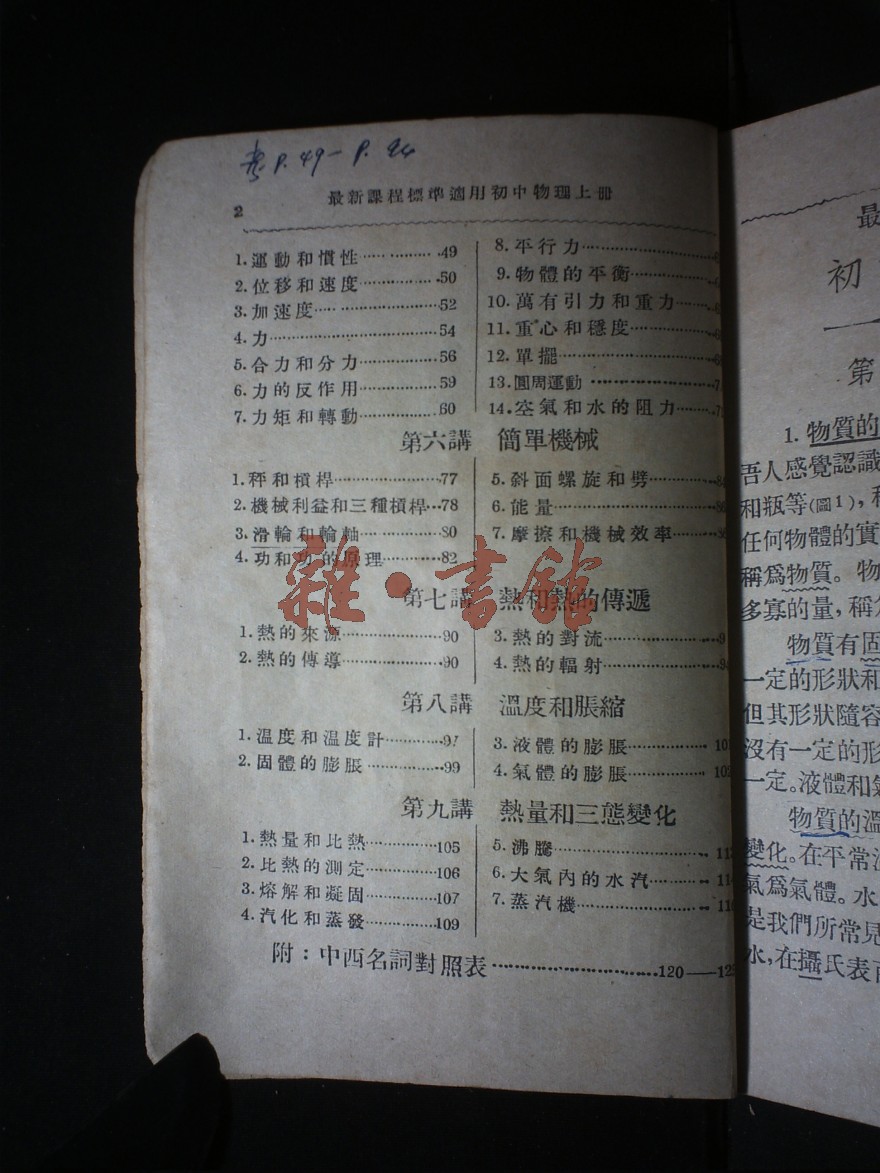 考 P. 49 - P. 94
2 最新課程標準適用初中物理上冊
1. 運動和慣性……………49
2. 位移和速度…………50
3. 加速度………………52
4. 力……………………54
5. 合力和分力…………56
6. 力的反作用…………59
7. 力矩和轉動…………60
8. 平行力………………
9. 物體的平衡…………
10. 萬有引力和重力……
11. 重心和穩度…………
12. 單擺…………………
13. 圓周運動……………
14. 空氣和水的阻力……
第六講 簡單機械
1. 秤和槓桿……………77
2. 機械利益和三種槓桿…78
3. 滑輪和輪軸…………80
4. 功和功的原理………82
5. 斜面螺旋和劈………
6. 能量…………………
7. 摩擦和機械效率……
第七講 熱和熱的傳遞
1. 熱的來源……………90
2. 熱的傳導……………90
3. 熱的對流……………
4. 熱的輻射……………
第八講 溫度和脹縮
1. 温度和温度計………97
2. 固體的膨脹…………99
3. 液體的膨脹…………
4. 氣體的膨脹…………
第九講 熱量和三態變化
1. 熱量和比熱…………105
2. 比熱的測定…………106
3. 熔解和凝固…………107
4. 汽化和蒸發…………109
5. 沸騰…………………
6. 大氣內的水汽………
7. 蒸汽機………………
附：中西名詞對照表…………………120——12
雜·書館
最
初
第
1. 物質的
吾人感覺認識
和瓶等(圖1)，
任何物體的實
稱爲物質。物
多寡的量，稱
物質有固
一定的形狀和
但其形狀隨容
沒有一定的形
一定。液體和氣
物質的溫
變化。在平常溫
氣爲氣體。水
是我們所常見
水，在攝氏表